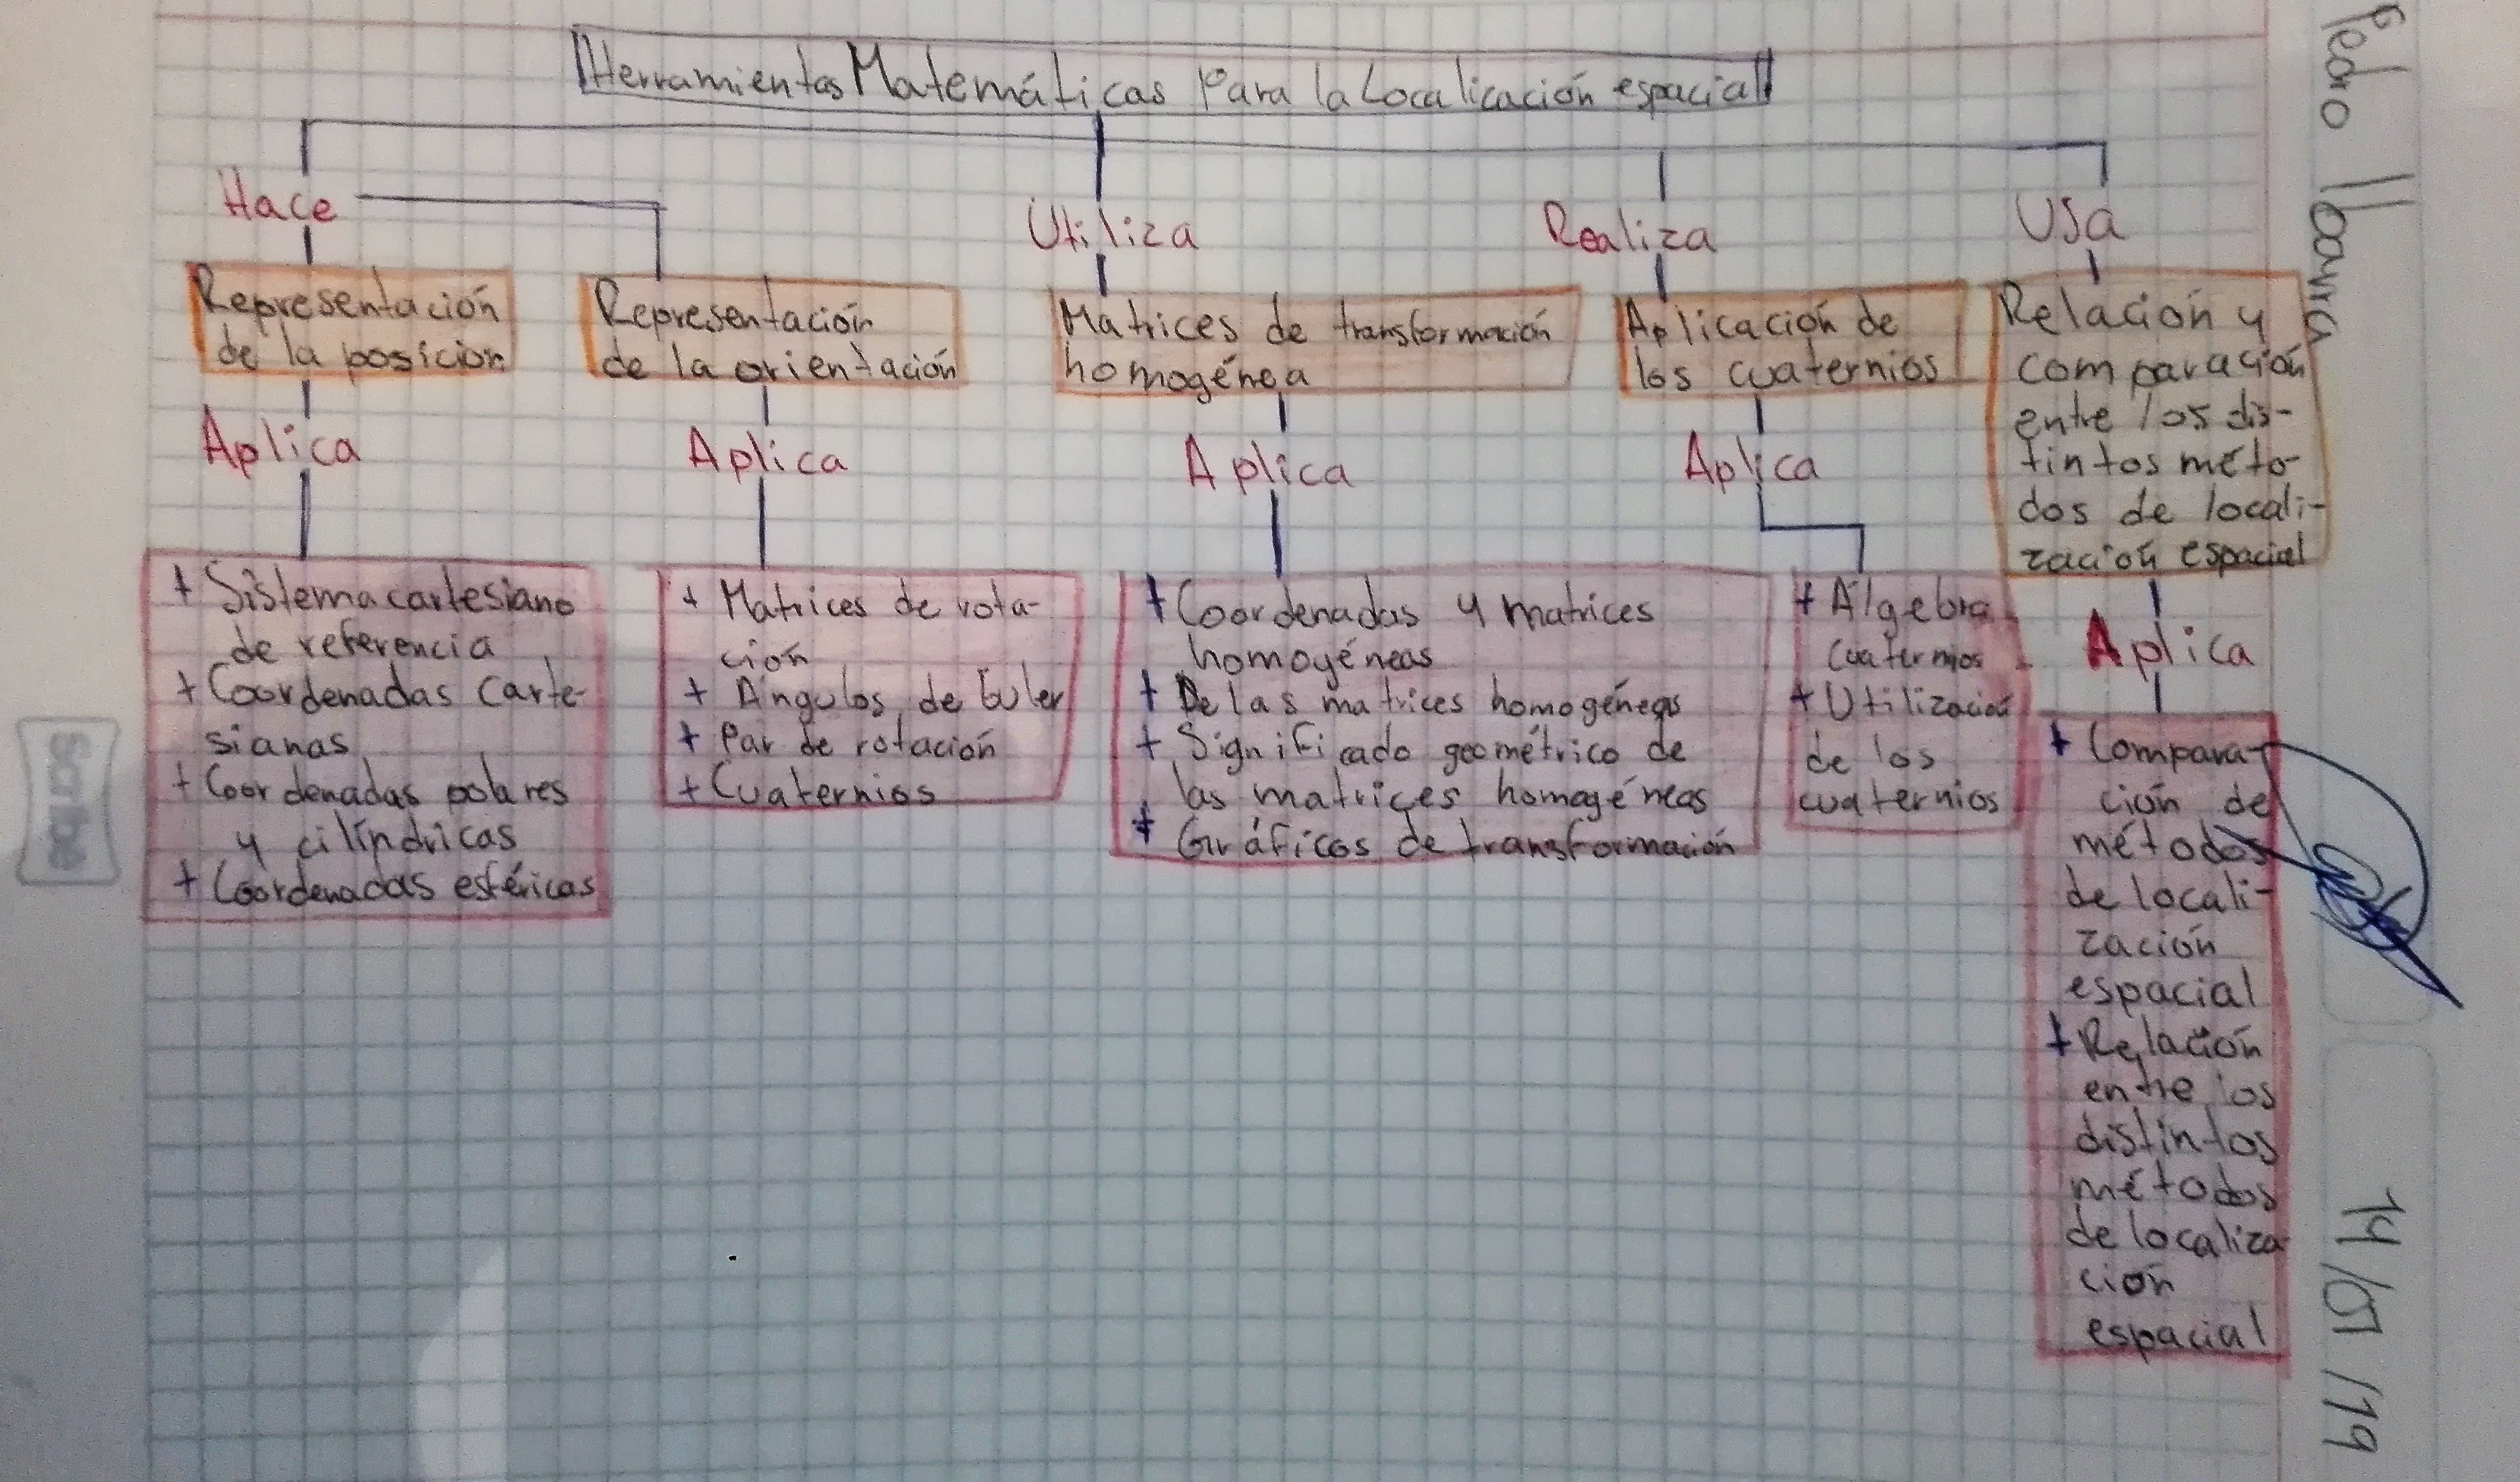 Herramientas Matemáticas Para la Localicación espacial
Hace
Utiliza
Realiza
Usa
Representación
de la posicion
Aplica
+ Sistema cartesiano
de referencia
+ Coordenadas carte-
sianas
+ Coordenadas polares
y cilíndricas
+ Coordenadas esféricas
Representación
de la orientación
Aplica
+ Matrices de rota-
ción
+ Ángulos de Euler
+ Par de rotación
+ Cuaternios
Matrices de transformación
homogénea
Aplica
+ Coordenadas y matrices
homogéneas
+ De las matrices homogéneas
+ Significado geométrico de
las matrices homogéneas
+ Gráficos de transformación
Aplicación de
los cuaternios
Aplica
+ Álgebra
Cuaternios
+ Utilización
de los
cuaternios
Relación y
comparación
entre los dis-
tintos méto-
dos de locali-
zación espacial
Aplica
+ Compara-
ción de
métodos
de locali-
zación
espacial
+ Relación
entre los
distintos
métodos
de localiza
ción
espacial
Pedro
14/07/19
Scribe